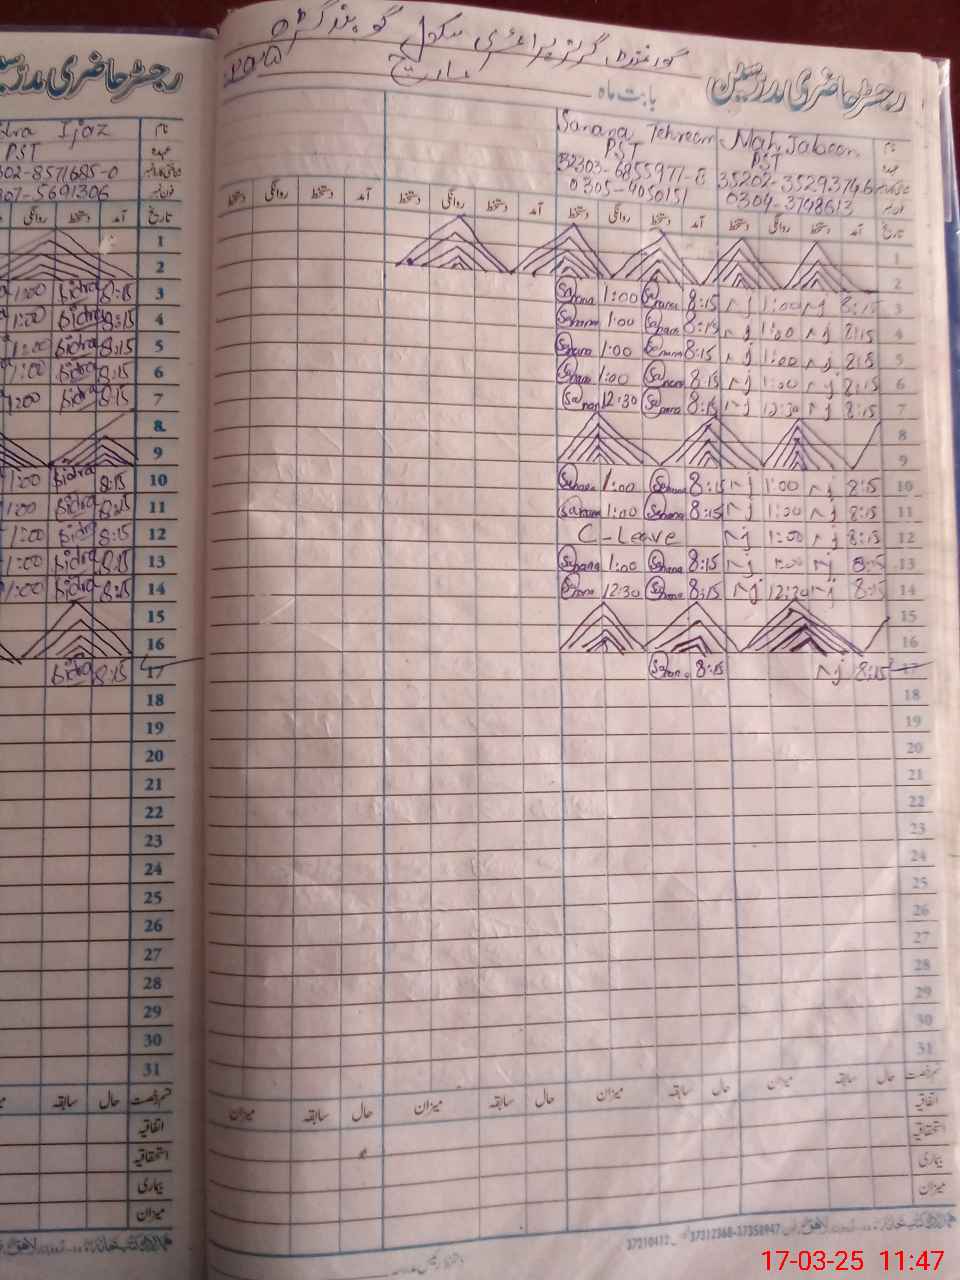 گورنمنٹ گرلز پرائمری سکول
رجسٹر حاضری مدرسین
بابت ماہ مارچ
Ijaz
PST
302-8571685-0
307-5691306
نام
عہدہ
تاریخ
آمد دستخط روانگی
Tehreem Mah Jabeen
PST PST
32303-6855971-8 35202-3529374-6
0305-4050151 0304-3748613
تاریخ آمد دستخط روانگی دستخط آمد دستخط روانگی دستخط آمد دستخط روانگی دستخط آمد دستخط روانگی دستخط
1 1
2 2
1:00 Sidra 8:15 3 1:00 8:15 mj 1:00 mj 8:15 3
1:00 Sidra 8:15 4 1:00 8:15 mj 1:00 mj 8:15 4
1:00 Sidra 8:15 5 1:00 8:15 mj 1:00 mj 8:15 5
1:00 Sidra 8:15 6 1:00 8:15 mj 1:00 mj 8:15 6
1:00 Sidra 8:15 7 12:30 8:15 mj 12:30 mj 8:15 7
8 8
9 9
1:00 Sidra 8:15 10 1:00 8:15 mj 1:00 mj 8:15 10
1:00 Sidra 8:15 11 1:00 8:15 mj 1:00 mj 8:15 11
1:00 Sidra 8:15 12 C-Leave mj 1:00 mj 8:15 12
1:00 Sidra 8:15 13 1:00 8:15 mj 1:00 mj 8:15 13
1:00 Sidra 8:15 14 12:30 8:15 mj 12:30 mj 8:15 14
15 15
16 16
Sidra 8:15 17 8:15 mj 8:15 17
18 18
19 19
20 20
21 21
22 22
23 23
24 24
25 25
26 26
27 27
28 28
29 29
30 30
31 31
قسم رخصت حال سابقہ میزان حال سابقہ میزان حال سابقہ میزان حال سابقہ میزان
اتفاقیہ اتفاقیہ
استحقاقیہ استحقاقیہ
بیماری بیماری
میزان میزان
37210412 37312368-37358947
17-03-25 11:47